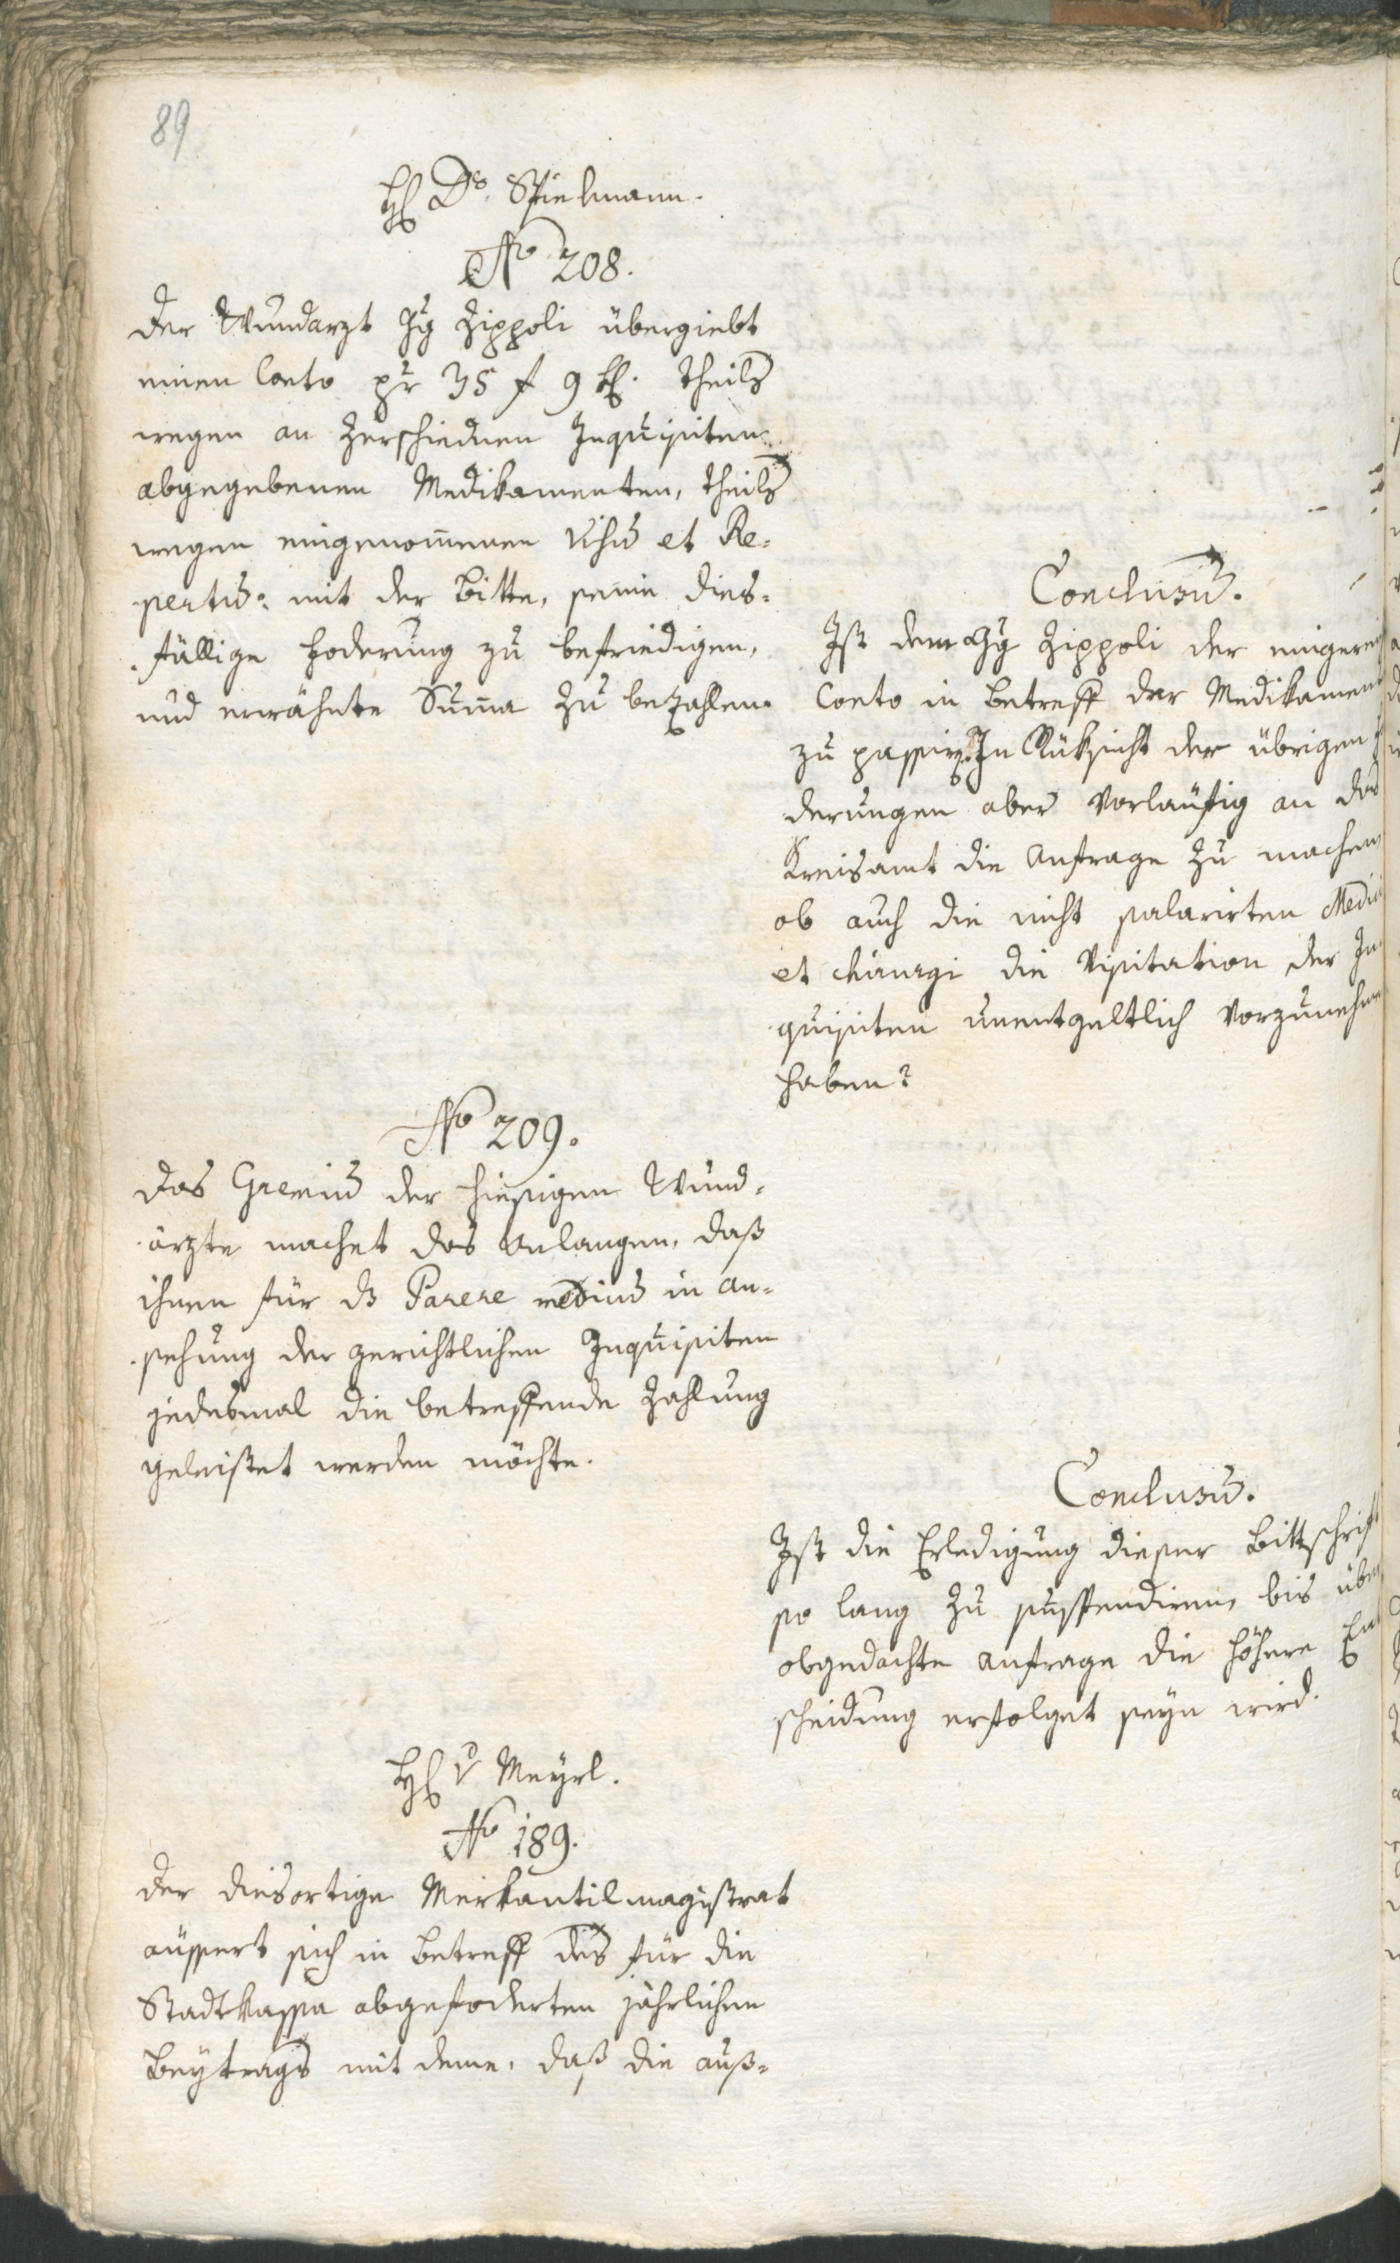 89
H Dr. Spielmann.
No 208.
Der Wundarzt Jg Zippoli übergiebt
einen Conto pr 35 f 9 k. theils
wegen an Zerschiednen Inquisiten
abgegebenen Medikamenten, theils
wegen eingenommenen Visu et Re-
pertu: mit der Bitte, seine dies-
fällige Foderung zu befriedigen,
und erwähnte Summa zu bezahlen.
Conclusum.
Ist dem Jg Zippoli der
Conto in Betreff der Medikament
zu passiren. In Rüksicht der übrigen
derungen aber vorläufig an das
Kreisamt die Anfrage zu machen
ob auch die nicht salarirten Medici
et chirurgi die Visitation der In-
quisiten unentgeltlich vorzunehmen
haben?
No 209.
Das Gremium der hiesigen Wund-
ärzte machet das Anlangen, daß
ihnen für ds Parere medicum in An-
sehung der gerichtlichen Inquisiten
jedesmal die betreffende Zahlung
geleistet werden möchte.
Conclusum.
Ist die Erledigung dieser Bittschrift
so lang zu suspendiren, bis über
obgedachte Anfrage die höhere Ent
scheidung erfolget seyn wird.
H v Meyrl.
No 189.
Der diesortige Merkantilmagistrat
äussert sich in Betreff des für die
Stadtkassa abgefoderten jährlichen
Beytrags mit deme, daß die auß-